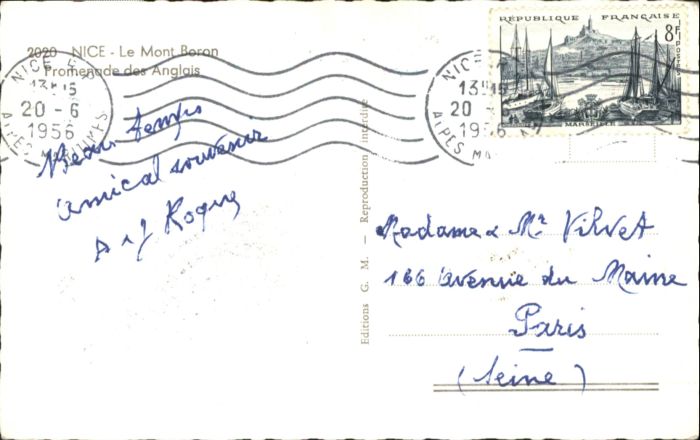 2020 NICE - Le Mont Boron
Promenade des Anglais
NICE
13H15
20-6
1956
ALPES MARITIMES
Beau temps
amical souvenir
Editions G. M. - Reproduction interdite
REPUBLIQUE FRANÇAISE
8F
POSTES
MARSEILLE
NICE
13H15
20-
1956
ALPES MA
Madame & Mr Vilvet
166 avenue du Maine
Paris
(Seine)